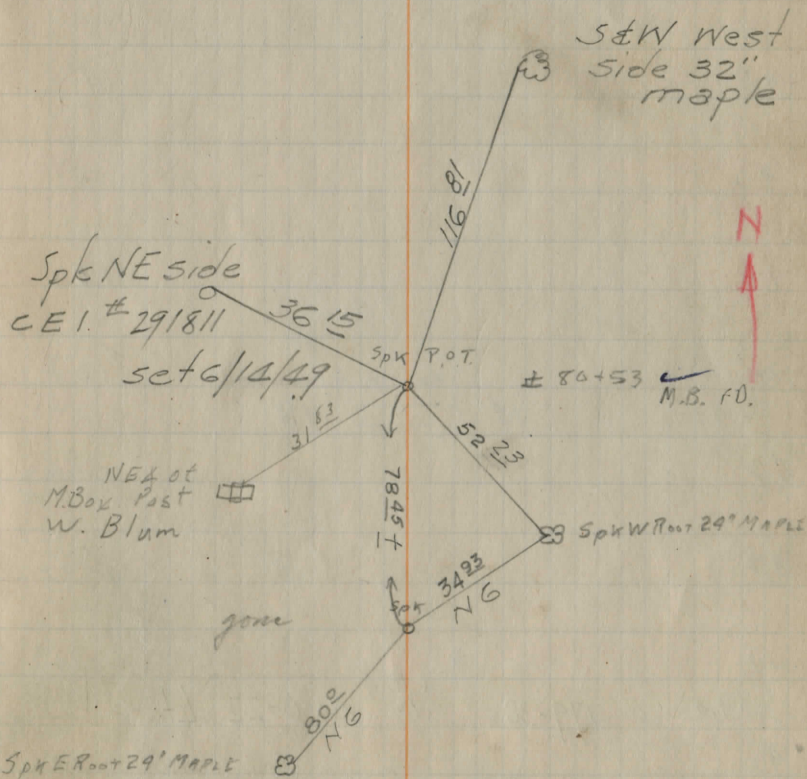 S&W West
Side 32"
maple
116 81
N
Spk NE side
C E I. # 291811
set 6/14/49
36 15
Spk P.O.T.
± 80+53
M.B. FD.
31 83
52 23
NE of
M.Box Post
W. Blum
78 45 ±
Spk W Root 24" MAPLE
34 23
N G
Spk
gone
80 0
N G
Spk E Root 24" MAPLE